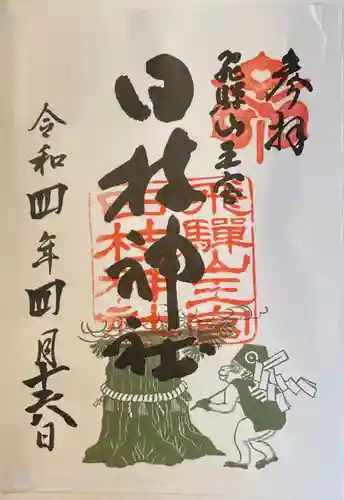 参拝
飛騨山王宮
日枝神社
令和四年四月十六日
飛騨山王宮
日枝神社